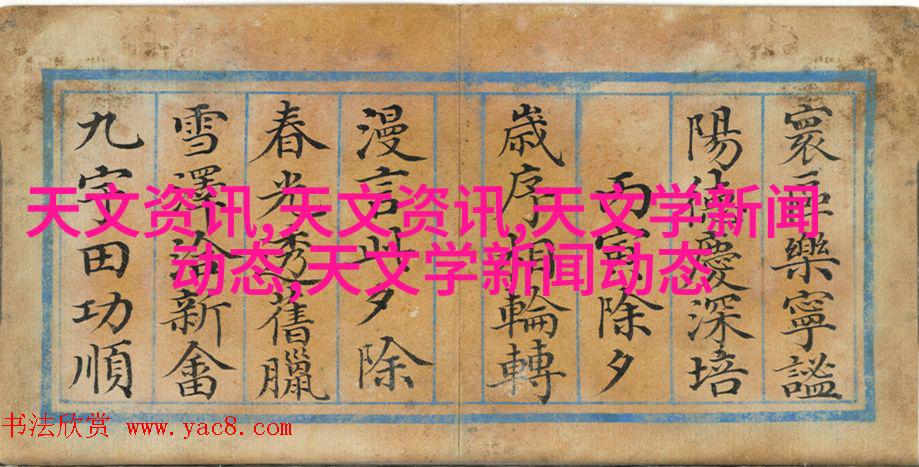 寰樂寧謐
陽深培
丙寅除夕
歲序相輪轉
漫言此夕除
春光透舊臘
雪澤洽新畬
九宇田功順
天文资讯,天文资讯,天文学新闻
动态,天文学新闻动态
书法欣赏 www.yac8.com